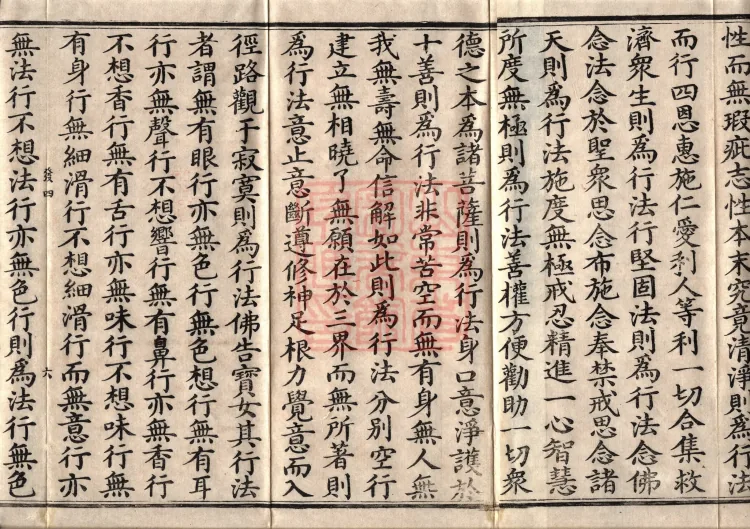 性而無瑕疵志性本末究竟清淨則為行法
而行四恩惠施仁愛利人等利一切合集救
濟衆生則為行法行堅固法則為行法念佛
念法念於聖衆思念布施念奉禁戒思念諸
天則為行法施度無極戒忍精進一心智慧
所度無極則為行法善權方便勸助一切衆
德之本為諸菩薩則為行法身口意淨護於
十善則為行法非常苦空而無有身無人無
我無壽無命信解如此則為行法分別空行
建立無相曉了無願在於三界而無所著則
為行法意止意斷遵修神足根力覺意而入
徑路觀于寂寞則為行法佛告寶女其行法
者謂無有眼行亦無色行無色想行無有耳
行亦無聲行不想響行無有鼻行亦無香行
不想香行無有舌行亦無味行不想味行無
有身行無細滑行不想細滑行而無意行亦
發四 六
無法行不想法行亦無色行則為法行無色